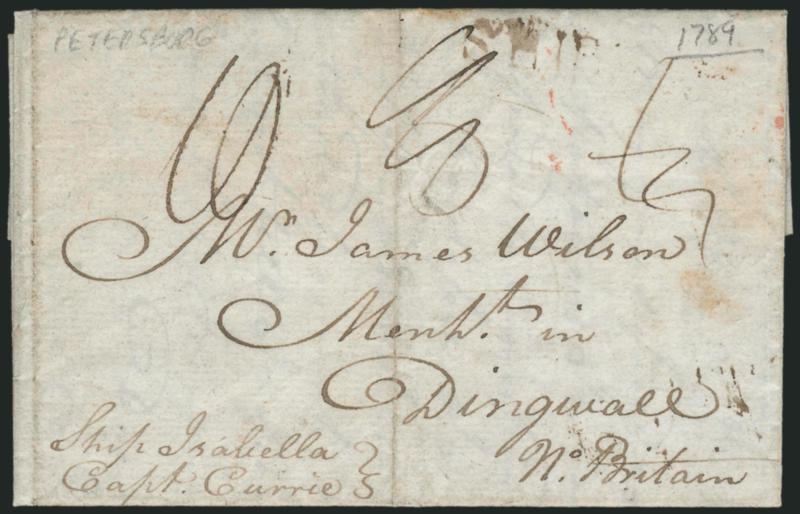 PETERSBURG
1789
Mr. James Wilson
Merch.t in
Dingwall
No. Britain
Ship Isabella
Capt. Currie